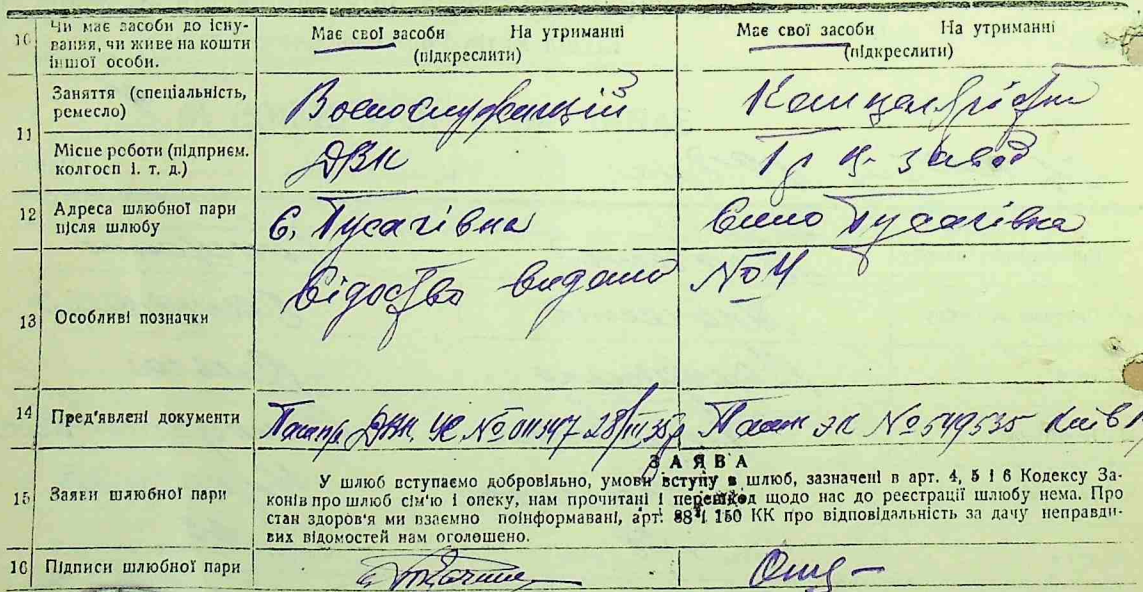 10 Чи має засоби до існування, чи живе на кошти іншої особи.
Має свої засоби На утриманні
(підкреслити)
Має свої засоби На утриманні
(підкреслити)
11 Заняття (спеціальність, ремесло)
Военослужащий
Місце роботи (підприєм. колгосп і. т. д.)
ДВК
завод
12 Адреса шлюбної пари після шлюбу
С. Гусачівна
Село Гусачівна
13 Особливі позначки
видано №4
14 Пред'явлені документи
ДВК. №
№ 549535 Київ
15 Заяви шлюбної пари
ЗАЯВА
У шлюб вступаємо добровільно, умови вступу в шлюб, зазначені в арт. 4, 5 і 6 Кодексу За-
конів про шлюб сім'ю і опеку, нам прочитані і перешкод щодо нас до реєстрації шлюбу нема. Про
стан здоров'я ми взаємно поінформавані, арт. 88 і 150 КК про відповідальність за дачу неправди-
вих відомостей нам оголошено.
16 Підписи шлюбної пари